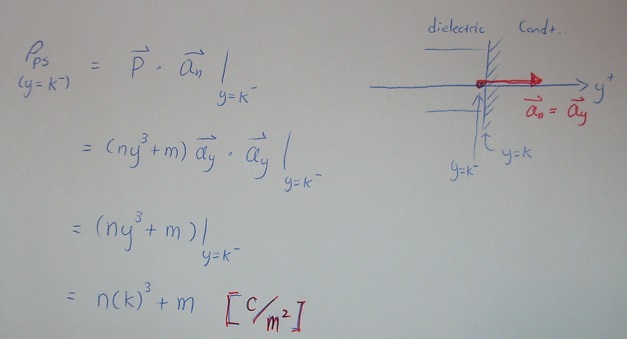 ρps = P⃗ · a⃗n |y=k⁻
(y=k⁻)
= (ny³+m) a⃗y · a⃗y |y=k⁻
= (ny³+m)|y=k⁻
= n(k)³+m [C/m²]
dielectric Condt.
y⁺
a⃗n = a⃗y
y=k⁻ y=k